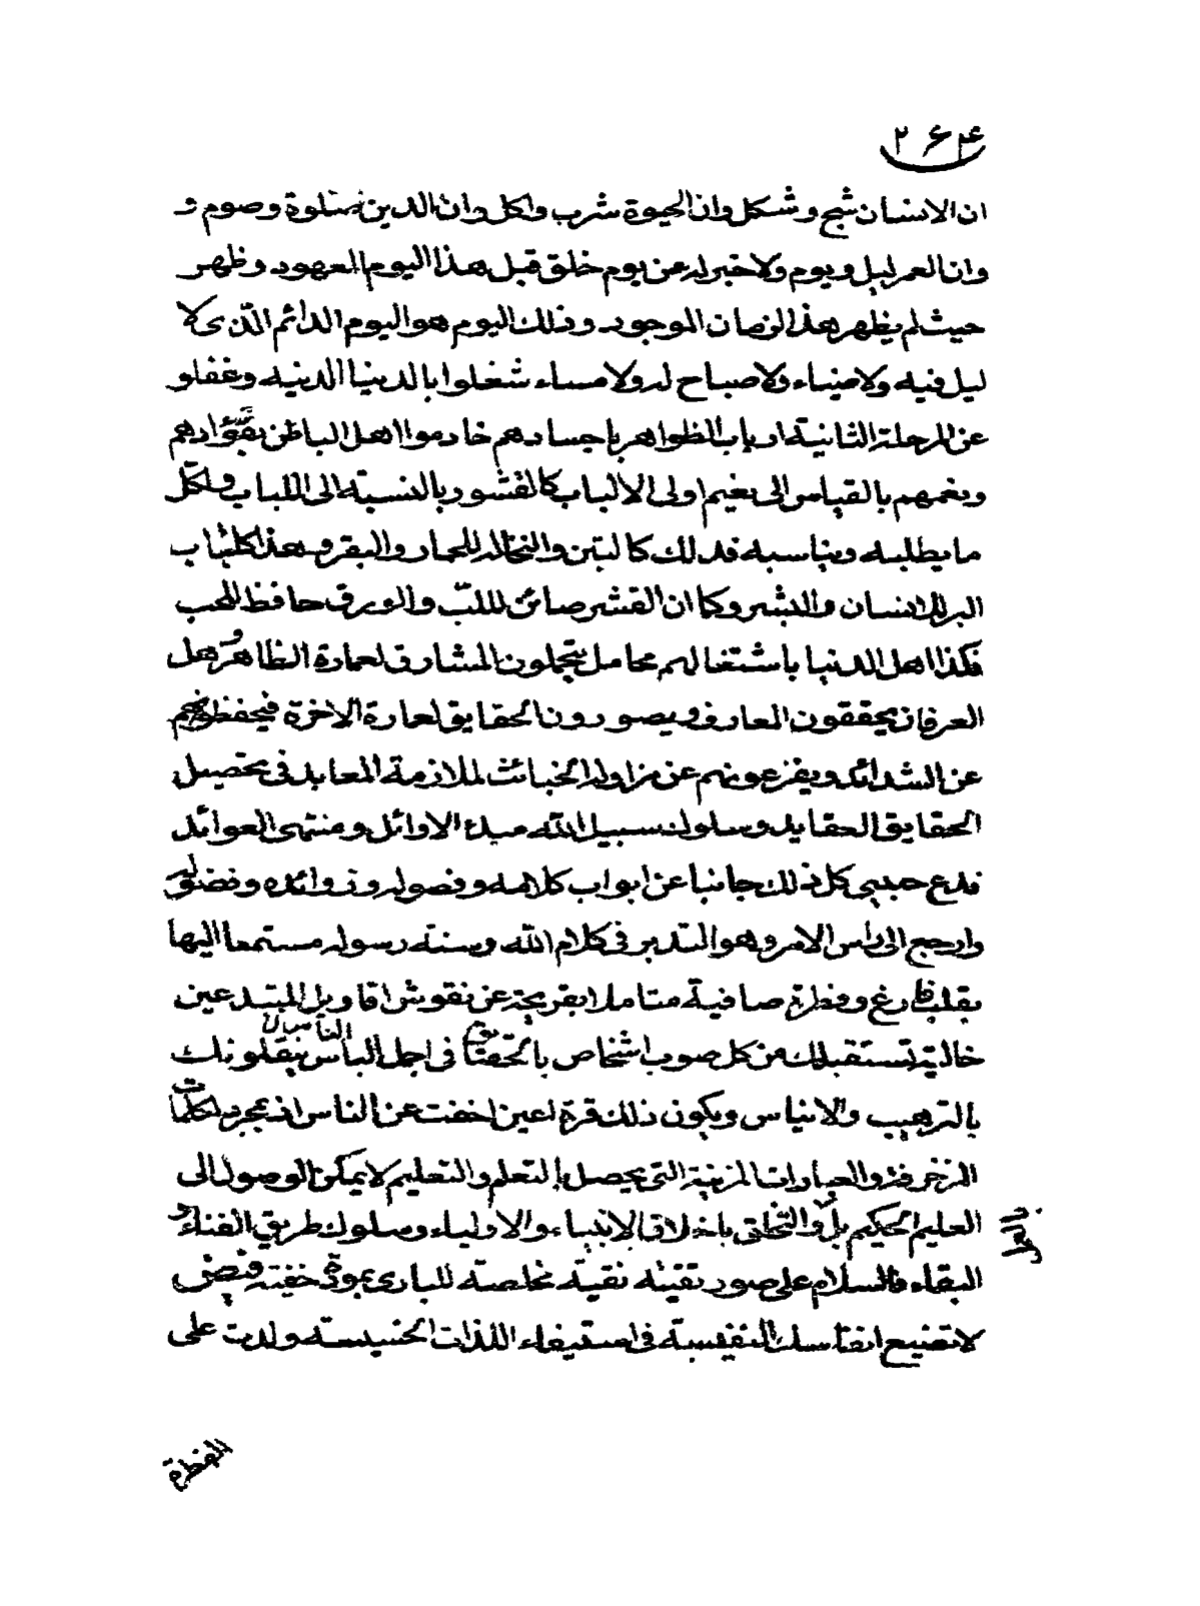 ۲۶۴
ان الانسان شبح و شكل وان الحيوة شرب واكل وان الدين صلوة وصوم و
وان العمر ليل ويوم ولا خبر له عن يوم خلق قبل هذا اليوم المعهود وظهر
حيث لم يظهر هذا الزمان الموجود وذلك اليوم هو اليوم الدائم الذى لا
ليل فيه ولا ضياء ولا صباح له ولا مساء شغلوا بالدنيا الدنيه وغفلو
عن المرحلة الثانية ارباب الظواهر باجسادهم خادموا اهل الباطن بفؤادهم
ونعمهم بالقياس الى نعيم اولى الالباب كالقشور بالنسبة الى اللباب ولكل
ما يطلبه ويناسبه فذلك كالتبن والنخاله للحمار والبقر وهذا كلباب
البر للانسان والبشر وكما ان القشر صائن لللب والورق حافظ للحب
فكذا اهل الدنيا باشتغالهم محامل يتحملون المشارق لعمارة الظاهر واهل
العرفان يحققون المعارف ويصورون الحقايق لعمارة الاخرة فيحفظونهم
عن الشدائد ويفزعونهم عن مزاولة الخبائث لملازمة المعابد فى تحصيل
الحقايق العقايد وسلوك سبيل الله مبدء الاوائل ومنتهى العوائد
فدع حبيبى كل ذلك جانبا عن ابواب كلامه وفصوله وزوائده وفضوله
وارجع الى راس الامر وهو التدبر فى كلام الله وسنته رسوله مستمعا اليها
بقلب فارغ وفطرة صافية متاملا بقريحة عن نقوش اقاويل المبتدعين
خالية تستقبلك من كل صوب اشخاص فى اجمل الباس ينقلونك
بالترهيب والايناس ويكون ذلك قرة اعين اخفت عن الناس اذ بمجرد الكلمات
المزخرفة والعبارات المزينة التى يحصل بالتعلم والتعليم لا يمكن الوصول الى
العليم الحكيم بل والتخلق باخلاق الانبياء والاولياء وسلوك طريق الفناء و
البقاء فالسلام على صور تقيته نقيته مخلصته للبارى
لا تضيع انفاسك النفيسته فى استيفاء اللذات الخسيسته ولدت على
الفطرة